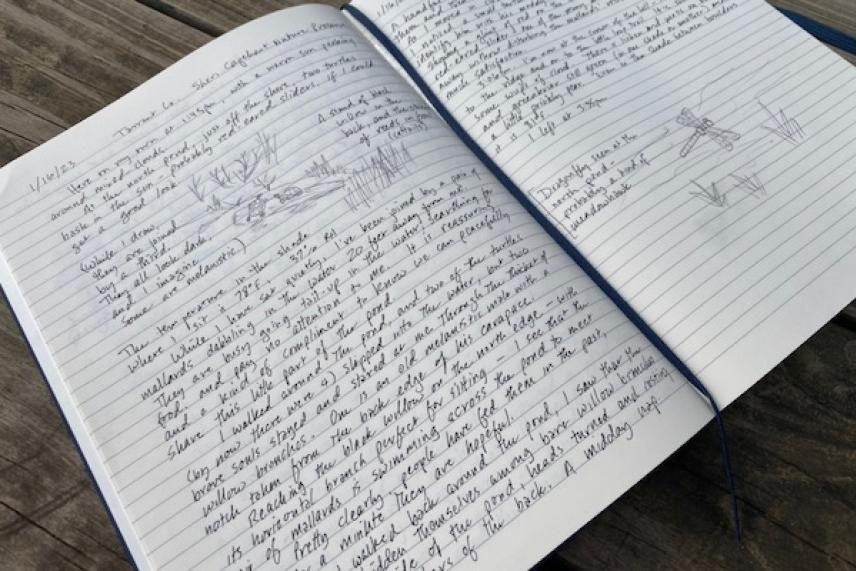 1/16/23
Tarrant Co. Sheri Capehart Nature Preserve
Here on my room at 1:45pm, with a warm sun peeking
around mixed clouds.
At the north pond, just off the shore, two turtles
bask in the sun - probably red eared sliders, if I could
get a good look
A stand of black
willow in the
back, and the
of reeds in front
(cattail)
(While I draw,
they are joined
by a third.
They all look dark,
and I imagine
some are melanistic)
The temperature in the shade
where I sit is 78°F - 37% RH
While I have sat quietly, I've been joined by a pair of
mallards, dabbling in the water 20 feet away from me.
They are busy going tail-up in the water, searching for
food, and pay no attention to me. It is reassuring
and a kind of compliment to know we can peacefully
share this little part of the pond
I walked around the pond, and two of the turtles
(by now there were 4) slipped into the water, but two
brave souls stayed and stared at me through the thicket of
willow branches. One is an old melanistic male with a
notch taken from the back edge of his carapace.
Reaching the black willow on the north edge - with
its horizontal branch perfect for sitting - I see that the
pair of mallards is swimming across the pond to meet
me. Pretty clearly, people have fed them in the past,
for a minute they are hopeful.
I walked back around the pond, I saw that the
hidden themselves among bare willow branches
side of the pond, heads turned and resting
of the back. A midday nap.
1/16
A handful
A moved
I noticed a
identify him with his muddy
shaped glow of red
red-eared slider
away without disturbing the mallards
much satisfaction.
3:20pm I'm now at the
to the edge and on
some wisps of cloud. There's lichen and
and greenbrier still green (in one shade or another) and
a little prickly pear. seen in the shade between boulders
it is 81°F
I left at 3:35pm
Dragonfly seen at the
north pond -
probably a kind of
meadowhawk